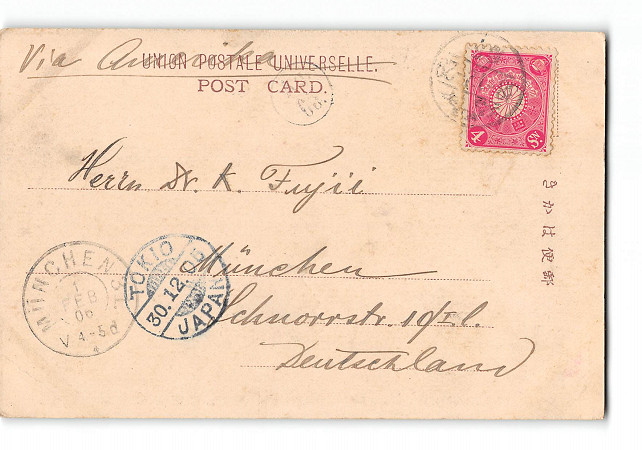 Via Amerika
UNION POSTALE UNIVERSELLE.
POST CARD.
4 Sn.
Herrn Dr. K. Fujii
München
Schnorrstr. 10/I. l.
Deutschland
MÜNCHEN
1
FEB
06
V 4-5
TOKIO
30.12.06
JAPAN
きかは便郵